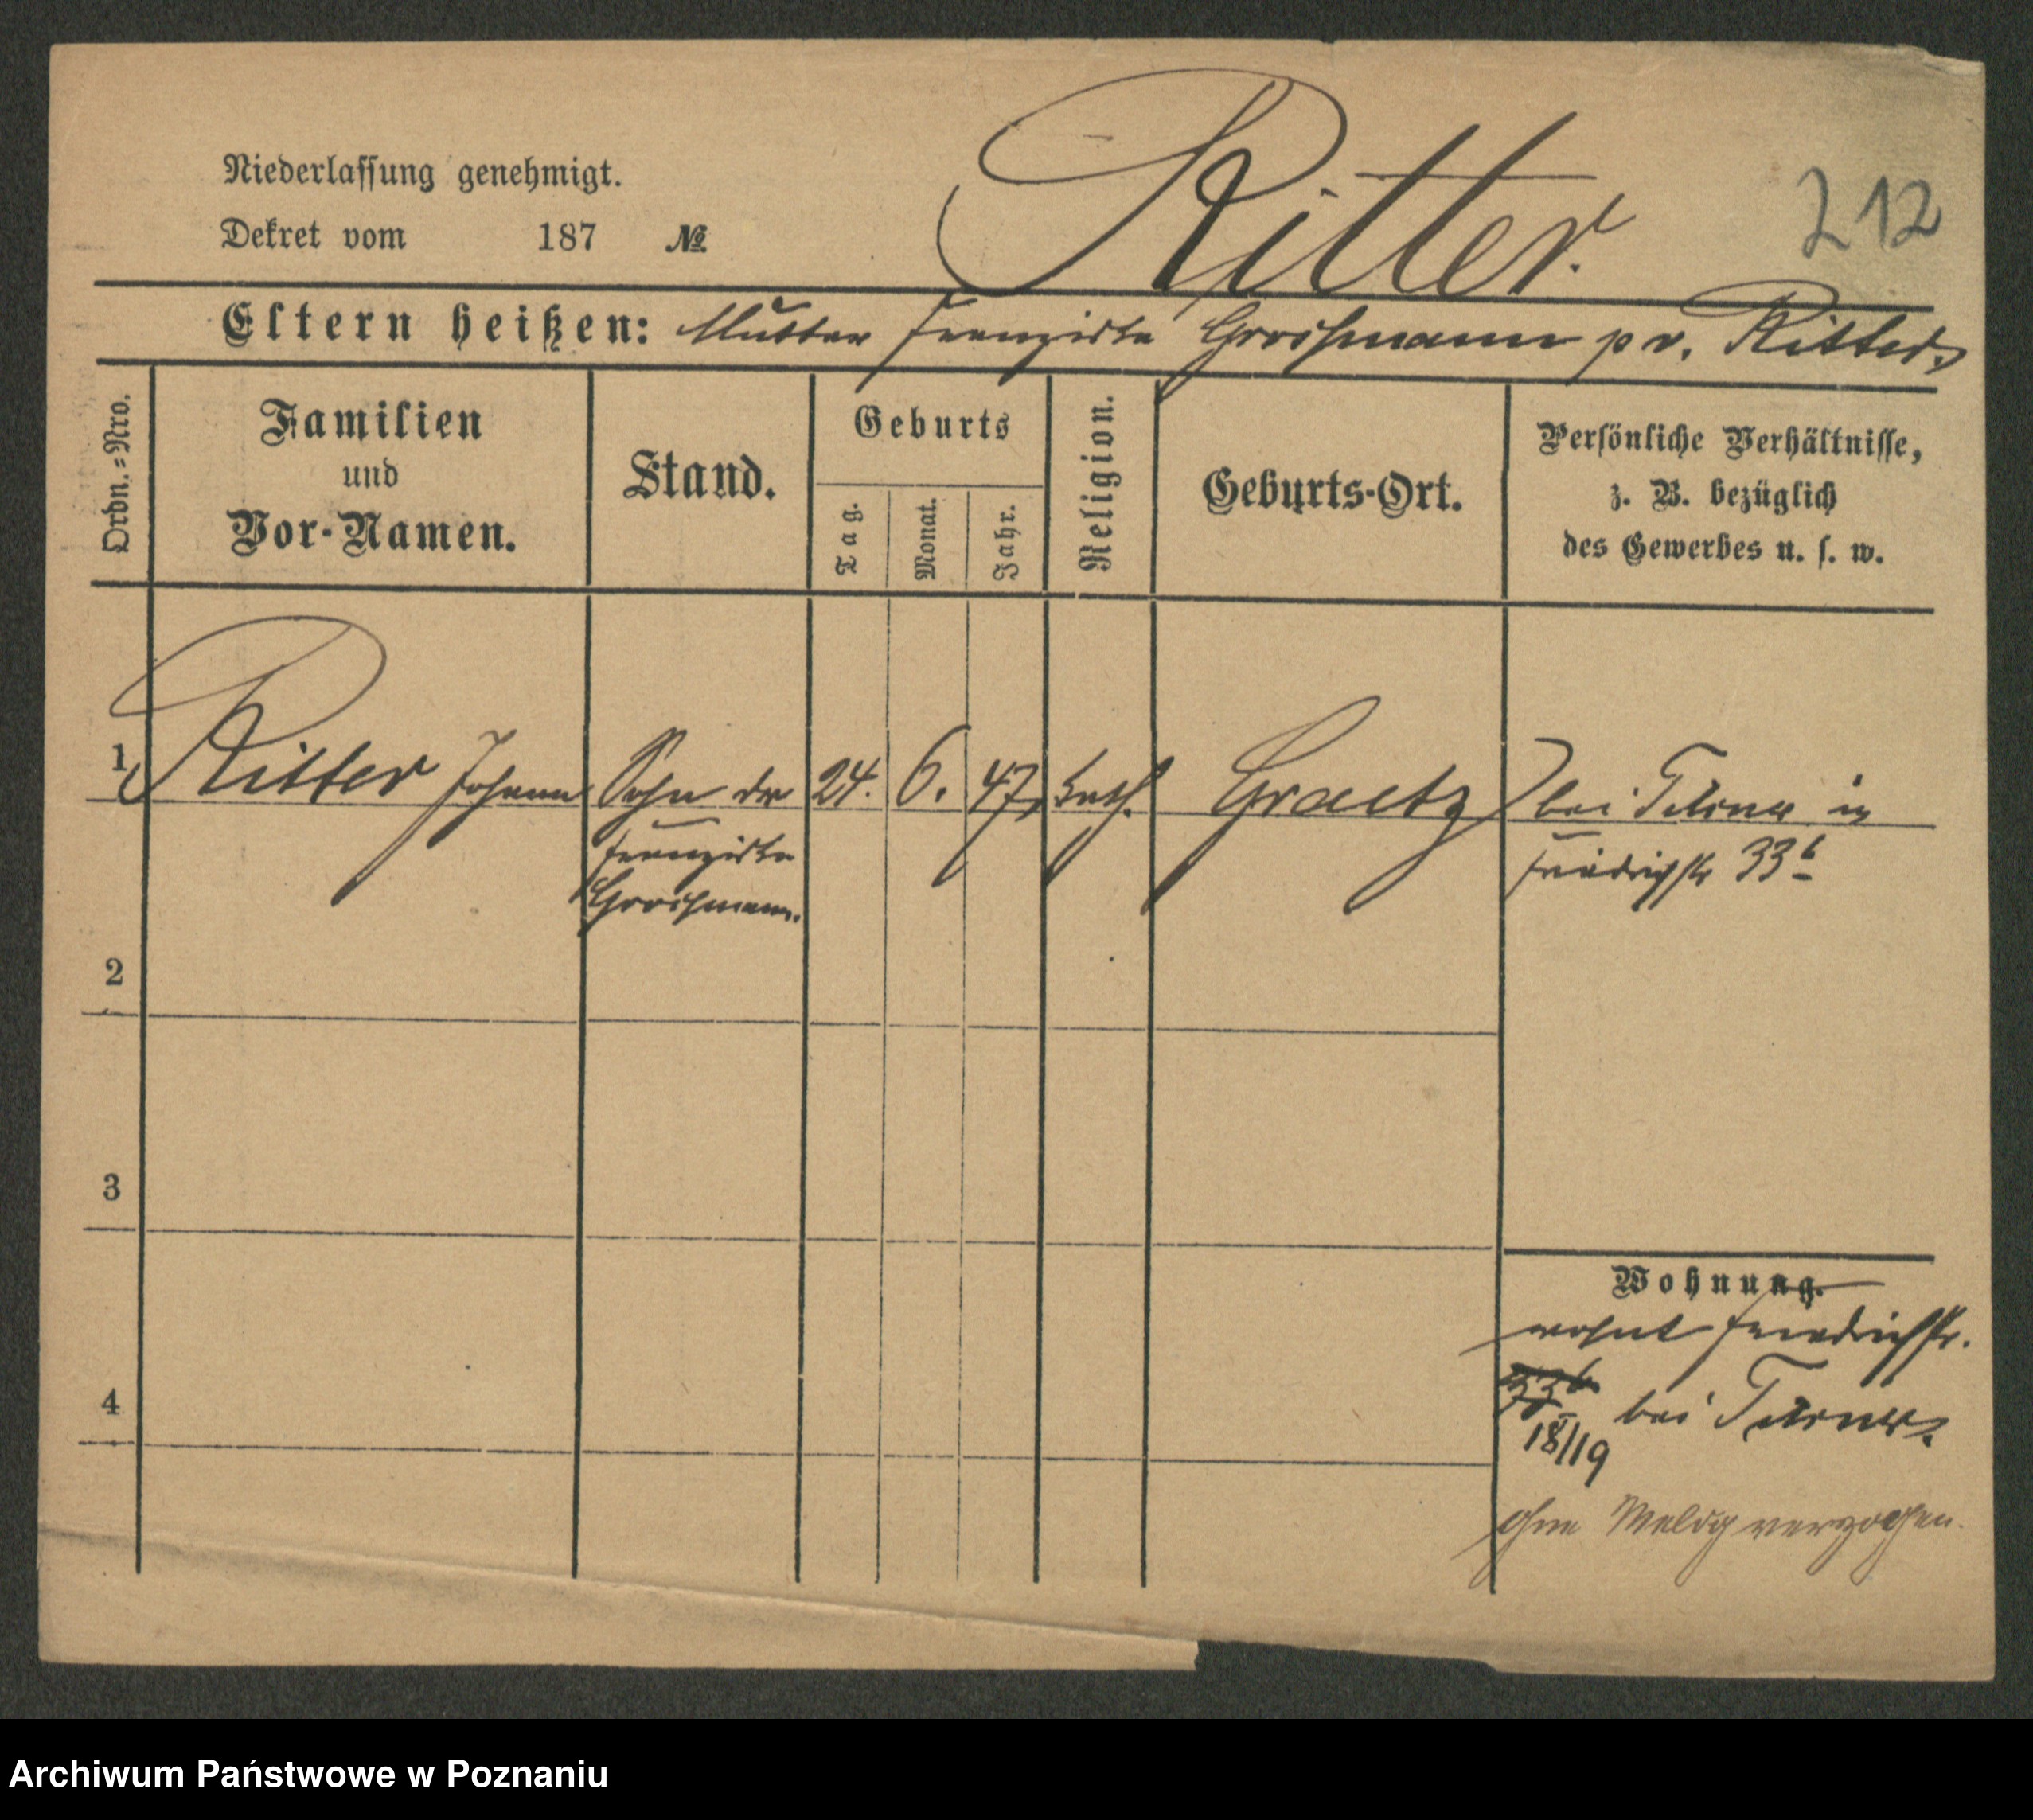 Ritter.
212
Niederlassung genehmigt.
Dekret vom 187 №
Eltern heißen: Mutter Franziska Groißmann p v. Ritter.
Ordn.=Nro.
Familien
und
Vor-Namen.
Stand.
Geburts
Tag.
Monat.
Jahr.
Religion.
Geburts-Ort.
Persönliche Verhältnisse,
z. B. bezüglich
des Gewerbes u. s. w.
1 Ritter Johann Sohn der 24. 6. 47, kath. Graetz bei in
Franziska
Friedrichstr 33b
2
3
4
Wohnung.
wohnt Friedrichstr.
33b bei
18/19
ohne Meldg verzogen.
Archiwum Państwowe w Poznaniu